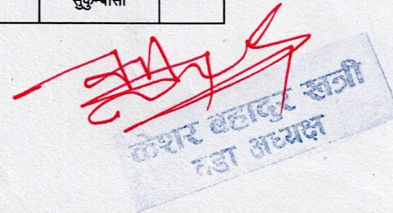 सुकुम्वासी
केशर बहादुर खत्री
वडा अध्यक्ष